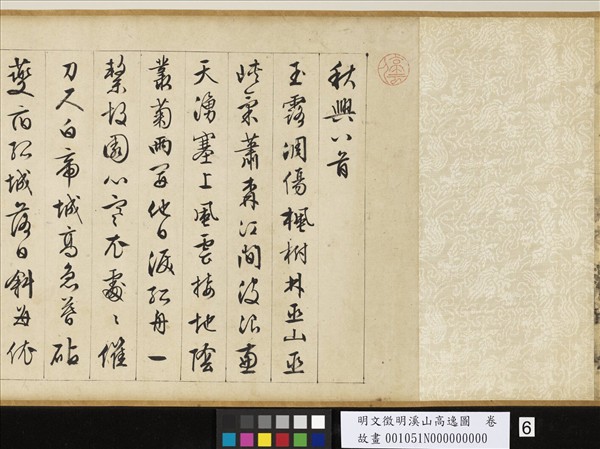 秋興八首
玉露凋傷楓樹林巫山巫
峽氣蕭森江間波浪兼
天湧塞上風雲接地陰
叢菊兩開他日淚孤舟一
繫故園心寒衣處々催
刀尺白帝城高急暮砧
夔府孤城落日斜每依
明文徵明溪山高逸圖 卷
故畫 001051N000000000
6